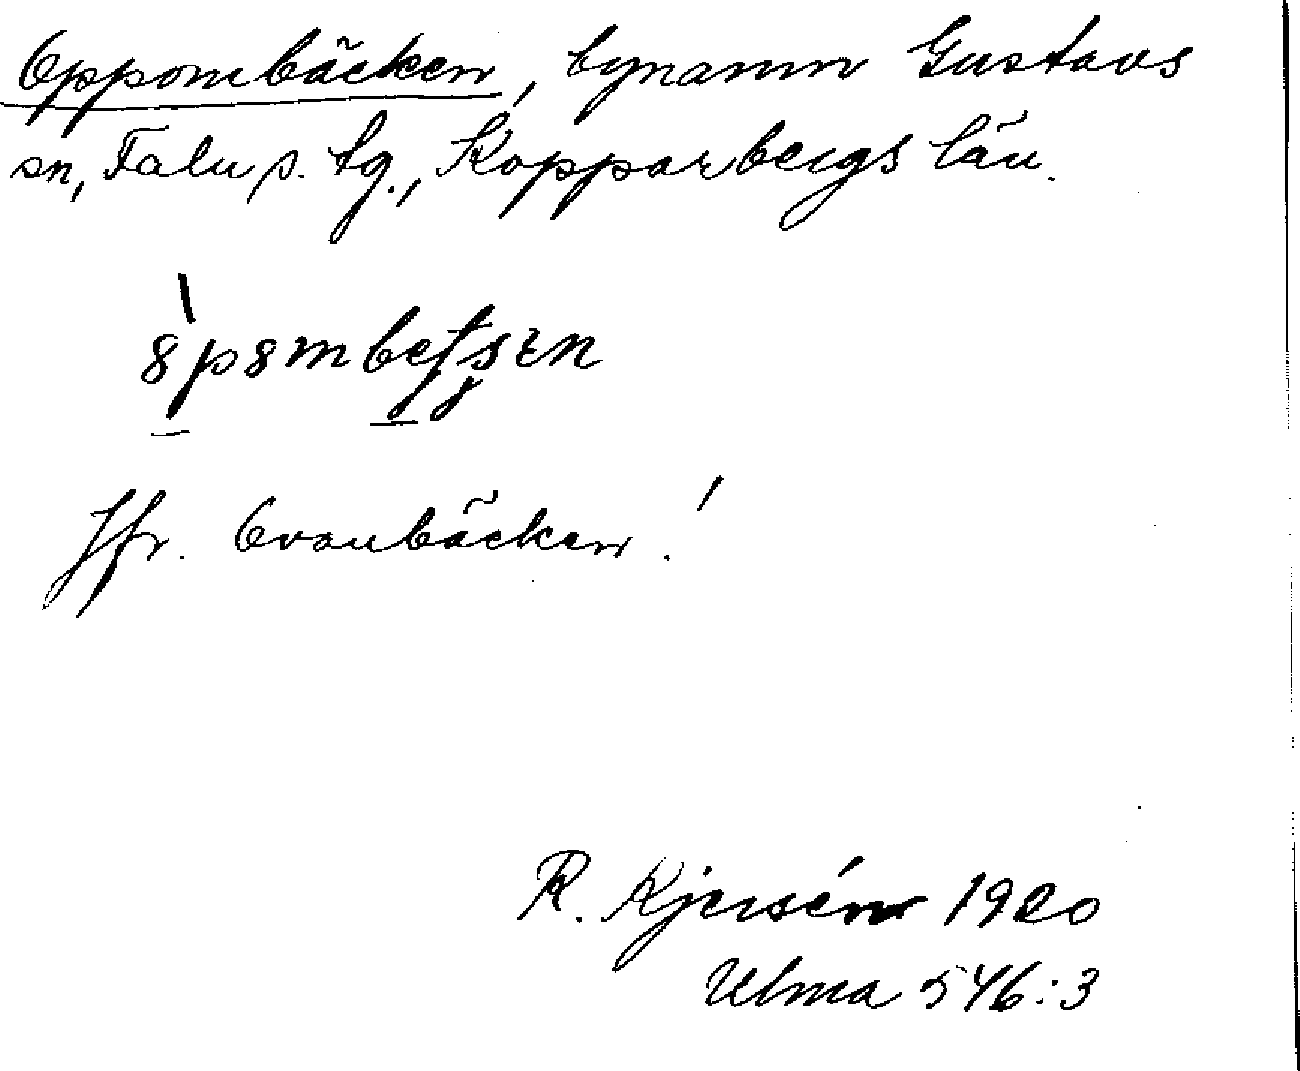 Oppombäcken, bynamn Gustavs
sn, Falu s. tg., Kopparbergs län.
Jfr. Ovanbäcken!
R. Kjersén 1920
Ulma 546:3